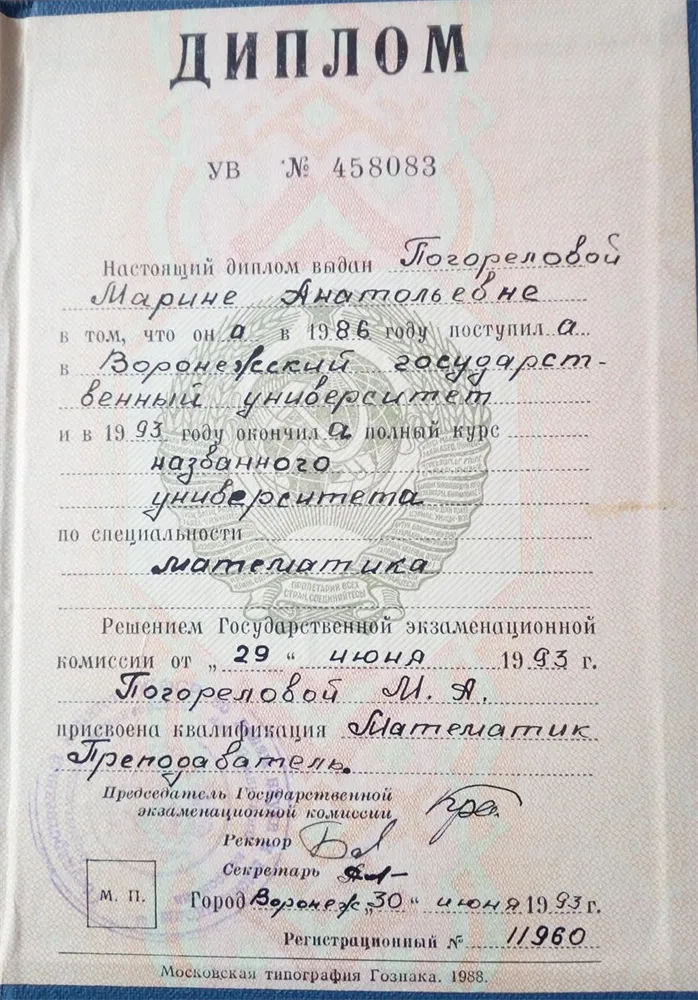 ДИПЛОМ
УВ № 458083
Настоящий диплом выдан Погореловой
Марине Анатольевне
в том, что он а в 1986 году поступил а
в Воронежский государст-
венный университет
и в 1993 году окончил а полный курс
названного
университета
по специальности
математика
ПРОЛЕТАРИИ ВСЕХ
СТРАН, СОЕДИНЯЙТЕСЬ!
Решением Государственной экзаменационной
комиссии от „29“ июня 1993 г.
Погореловой М. А.
присвоена квалификация Математик.
Преподаватель.
Председатель Государственной
экзаменационной комиссии
Ректор
Секретарь
М. П.
Город Воронеж „30“ июня 1993 г.
Регистрационный № 11960
Московская типография Гознака. 1988.